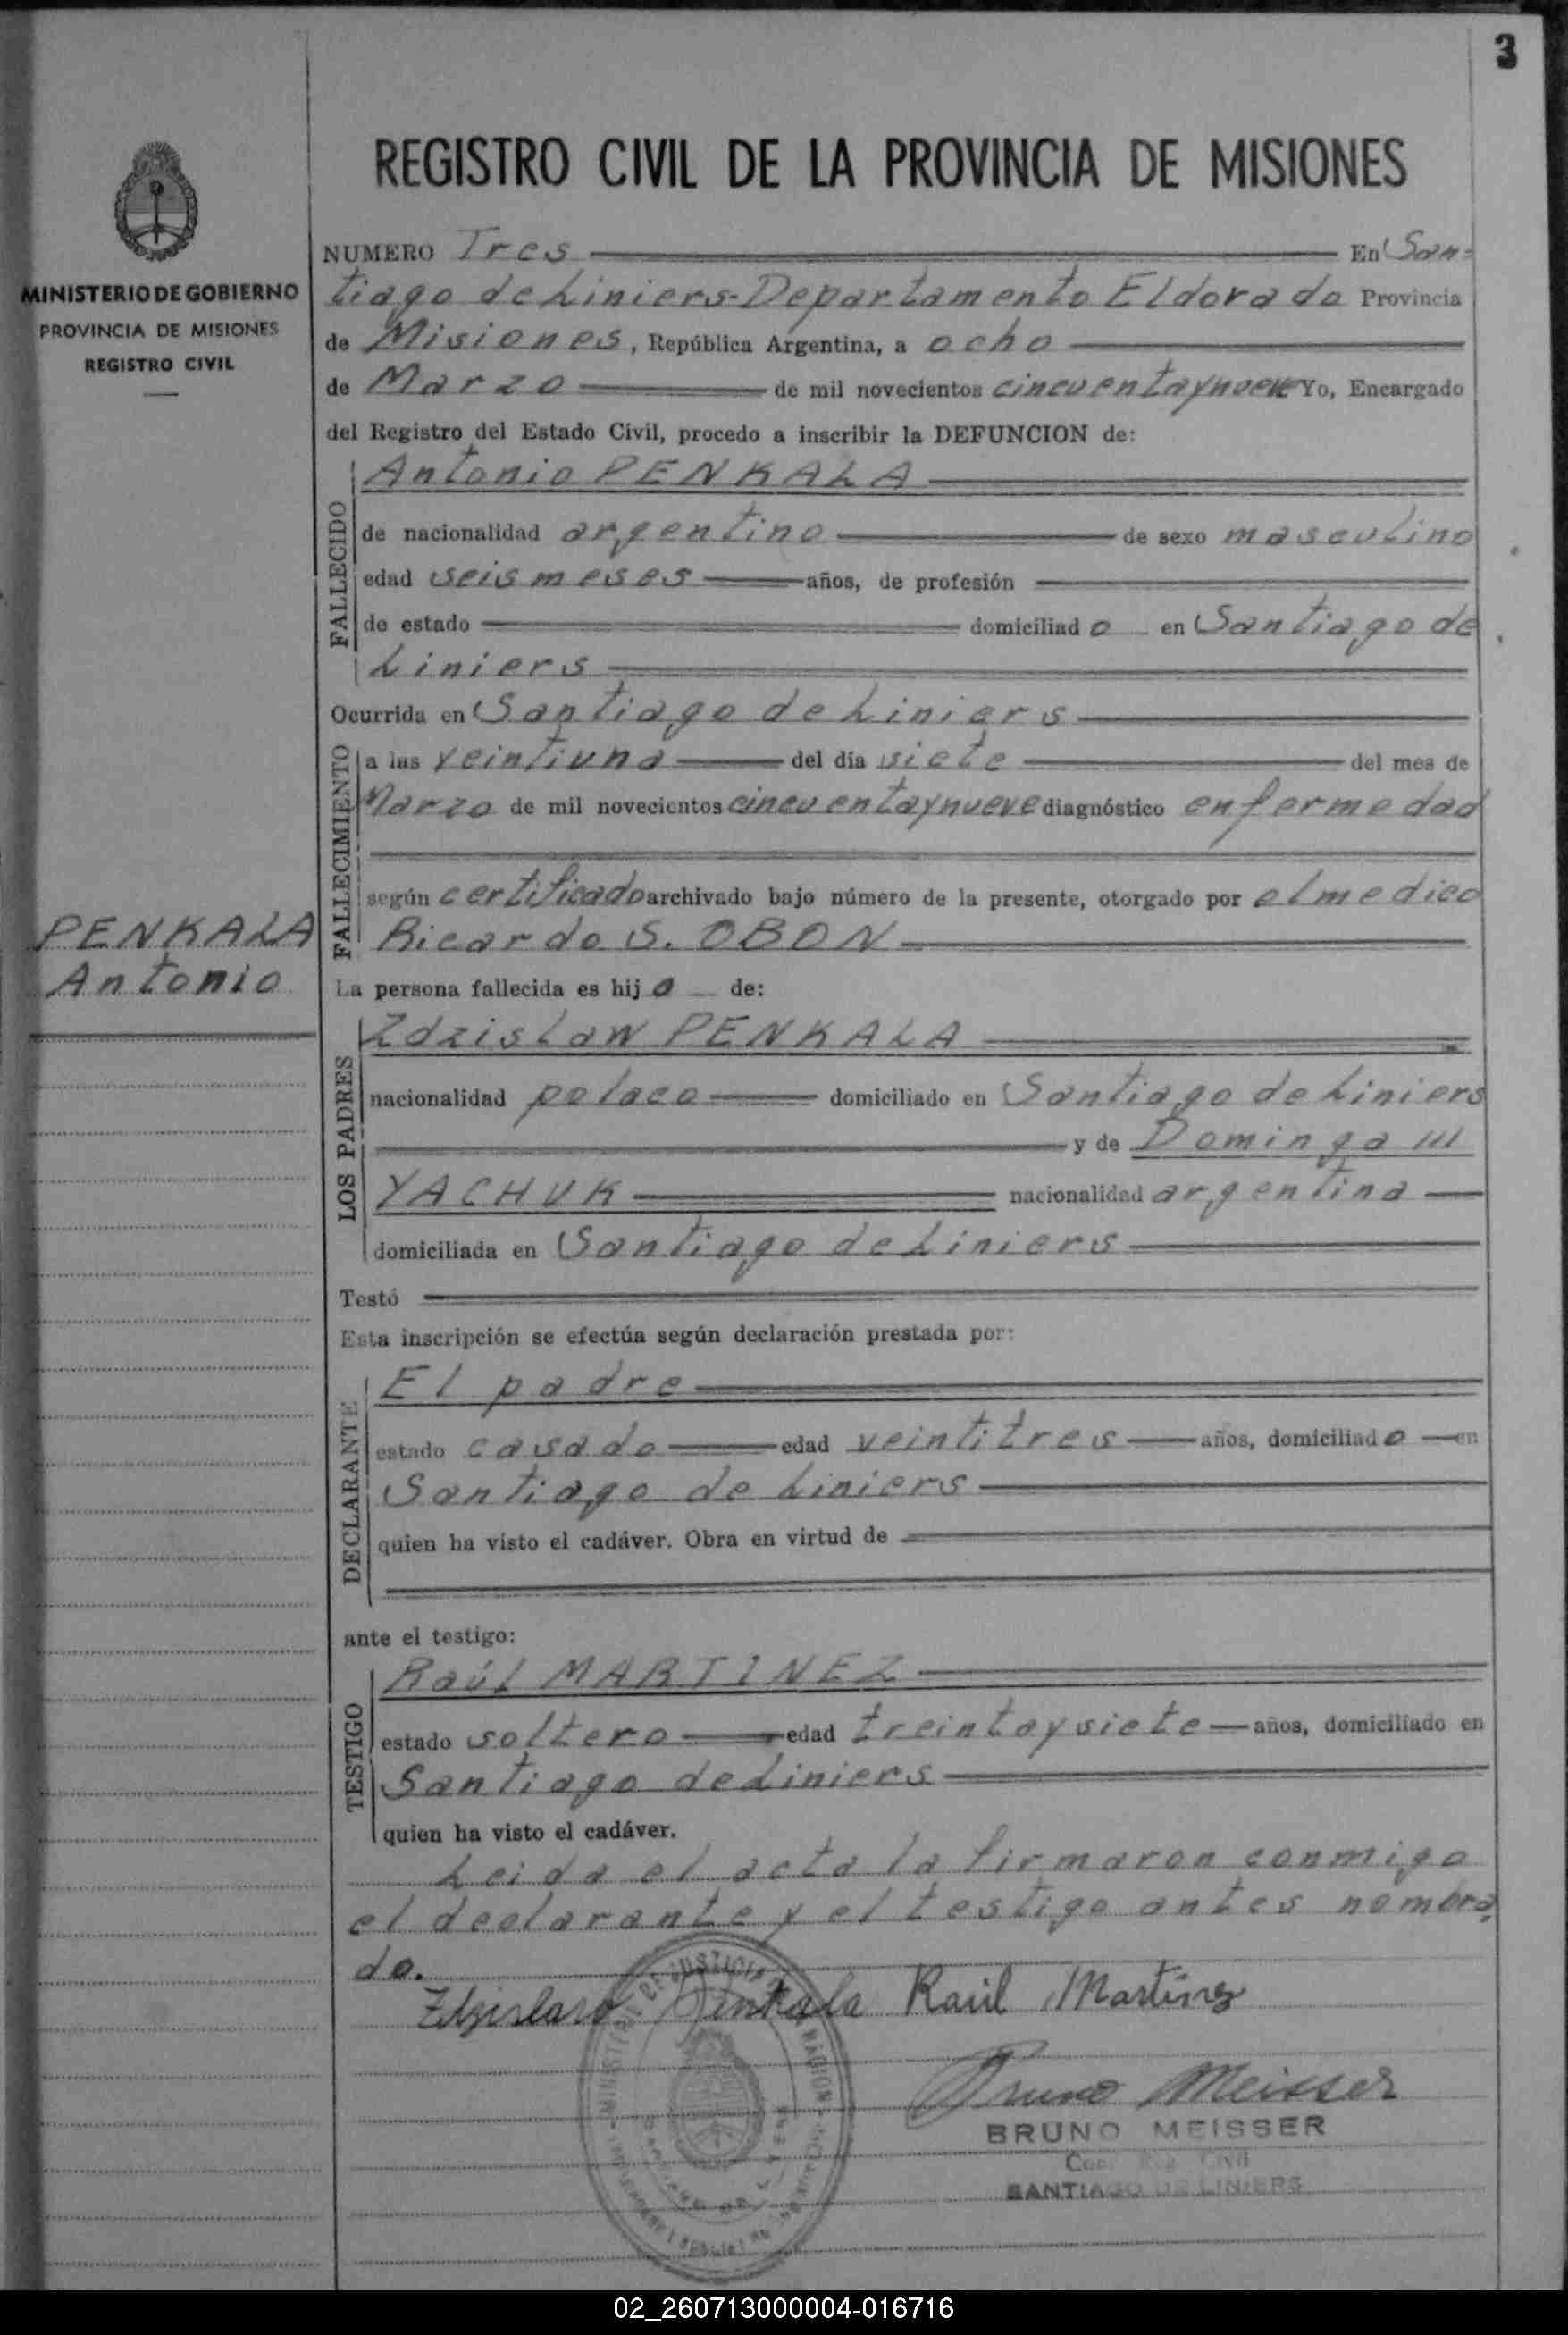 3
REGISTRO CIVIL DE LA PROVINCIA DE MISIONES
MINISTERIO DE GOBIERNO
PROVINCIA DE MISIONES
REGISTRO CIVIL
PENKALA
Antonio
NUMERO Tres En San-
tiago de Liniers-Departamento Eldorado Provincia
de Misiones, República Argentina, a ocho
de Marzo de mil novecientos cincuentaynueve Yo, Encargado
del Registro del Estado Civil, procedo a inscribir la DEFUNCION de:
FALLECIDO
Antonio PENKALA
de nacionalidad argentino de sexo masculino
edad seis meses años, de profesión
de estado domiciliado en Santiago de
Liniers
Ocurrida en Santiago de Liniers
FALLECIMIENTO
a las veintiuna del día siete del mes de
Marzo de mil novecientos cincuentaynueve diagnóstico enfermedad
según certificado archivado bajo número de la presente, otorgado por el medico
Ricardo S. OBON
La persona fallecida es hijo de:
LOS PADRES
Zdzislaw PENKALA
nacionalidad polaco domiciliado en Santiago de Liniers
y de Dominga
YACHUK nacionalidad argentina
domiciliada en Santiago de Liniers
Testó
Esta inscripción se efectúa según declaración prestada por:
DECLARANTE
El padre
estado casado edad veintitres años, domiciliado en
Santiago de Liniers
quien ha visto el cadáver. Obra en virtud de
ante el testigo:
TESTIGO
Raúl MARTINEZ
estado soltero edad treintaysiete años, domiciliado en
Santiago de Liniers
quien ha visto el cadáver.
Leida el acta la firmaron conmigo
el declarante y el testigo antes nombra
do.
Zdzislaw Penkala Raúl Martínez
Bruno Meisser
BRUNO MEISSER
Civil
SANTIAGO DE LINIERS
02_260713000004-016716